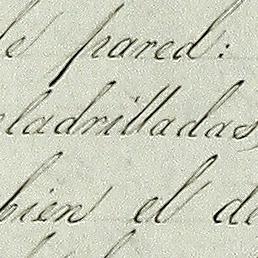 de pared:
eladrilladas,
bien el de